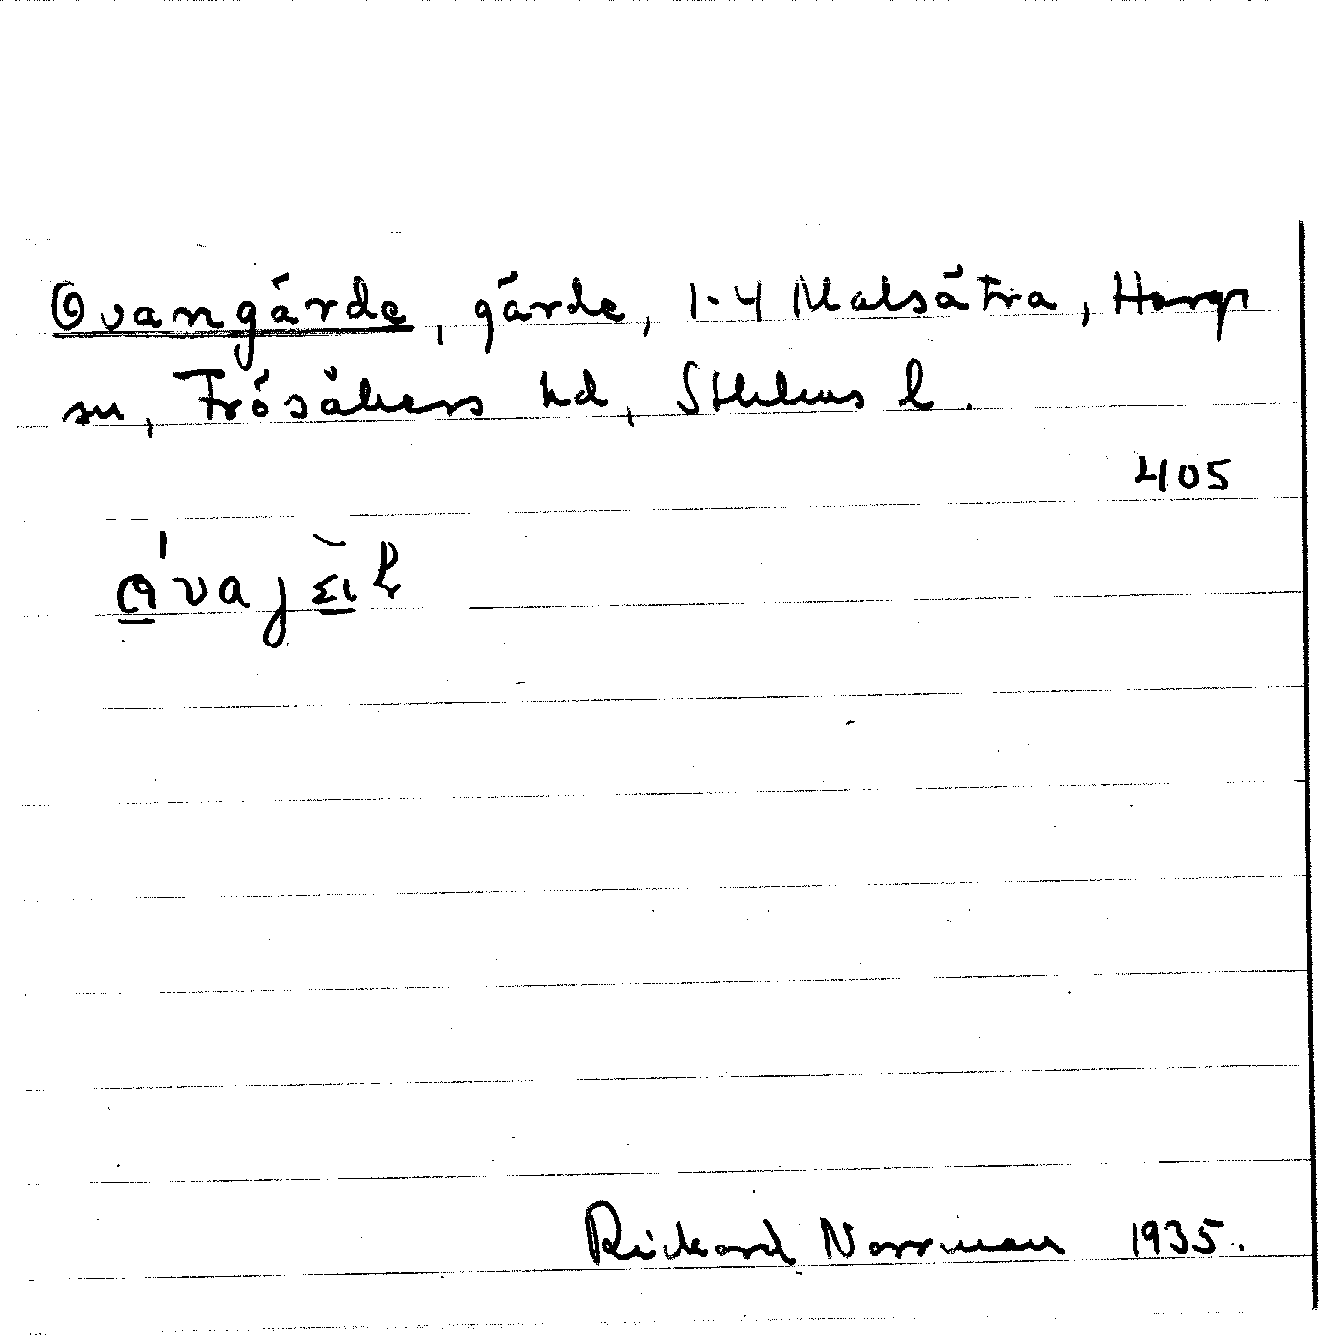 Ovangärde, gärde, 1-4 Malsätra, Hargs
sn, Frösåkers hd, Sthlms l.
405
Rickard Norrman 1935.